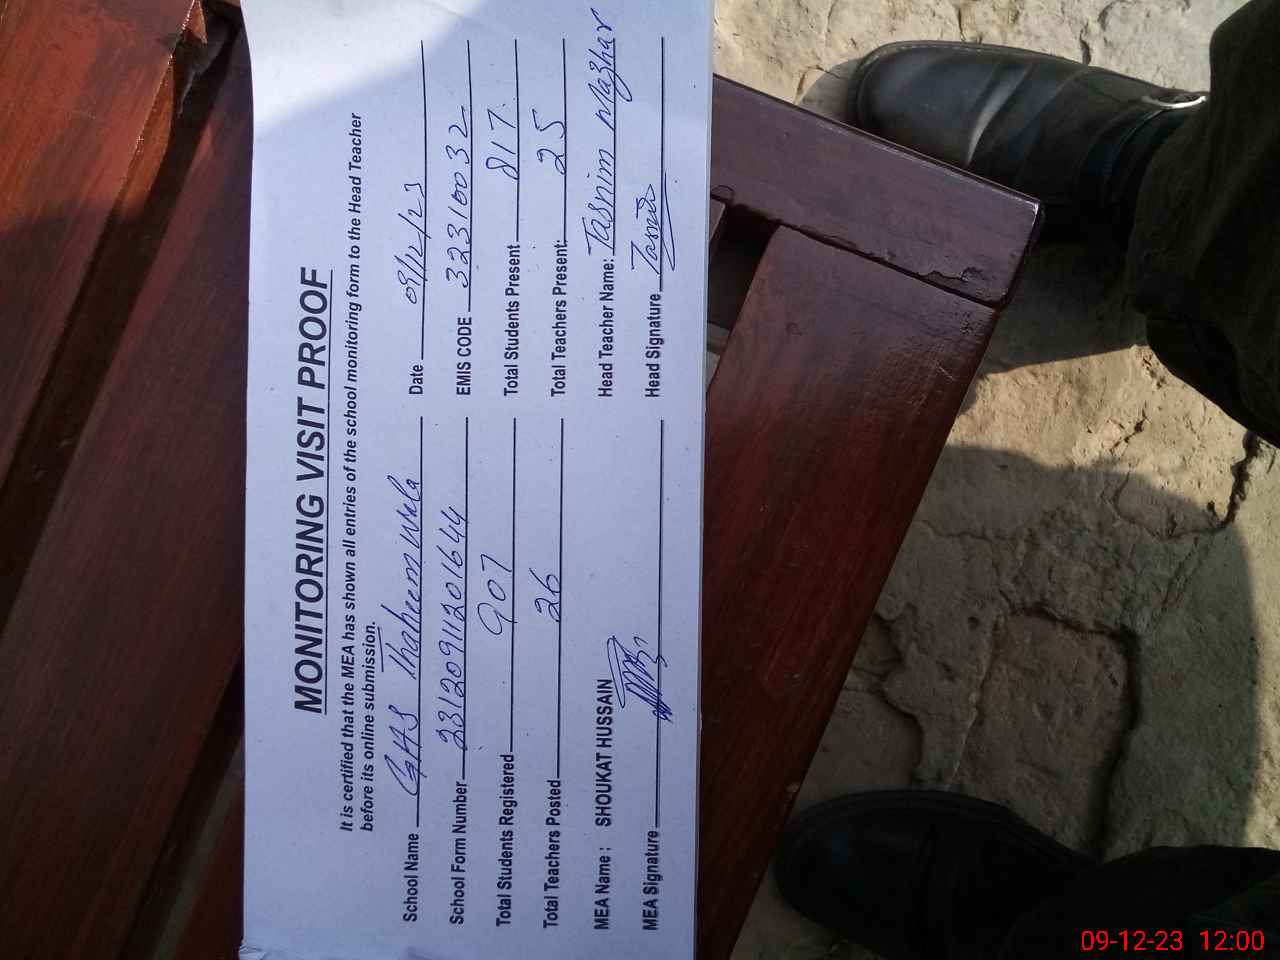 MONITORING VISIT PROOF
It is certified that the MEA has shown all entries of the school monitoring form to the Head Teacher
before its online submission.
School Name GHS Thaheem Wala Date 09/12/23
School Form Number 231209112201644 EMIS CODE 32310032
Total Students Registered 907 Total Students Present 817
Total Teachers Posted 26 Total Teachers Present: 25
MEA Name : SHOUKAT HUSSAIN Head Teacher Name: Tasnim Mazhar
MEA Signature Head Signature
09-12-23 12:00